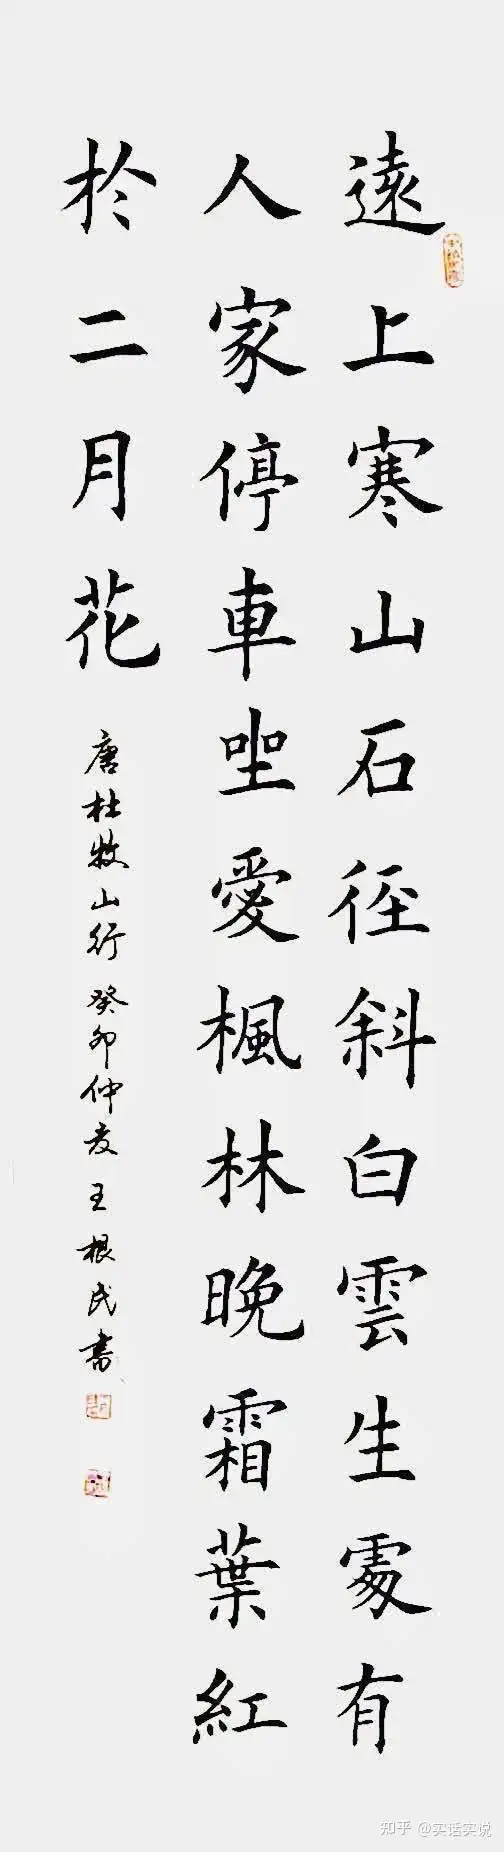 遠上寒山石徑斜白雲生處有
人家停車坐愛楓林晚霜葉紅
於二月花
唐杜牧山行 癸卯仲夏 王根民書
知乎 @实话实说